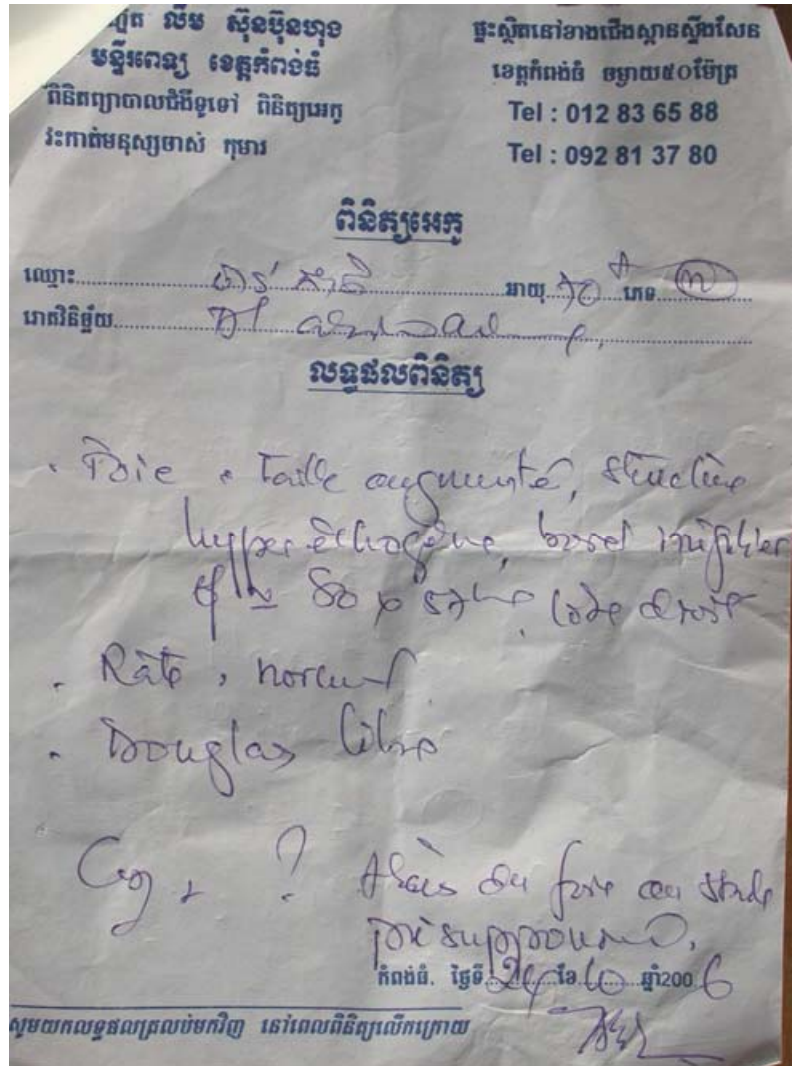 លឹម ស៊ុនប៊ុនហុង
មន្ទីរពេទ្យ ខេត្តកំពង់ធំ
ពិនិត្យព្យាបាលជំងឺទូទៅ ពិនិត្យអេកូ
វះកាត់មនុស្សចាស់ កុមារ
ផ្ទះស្ថិតនៅខាងជើងស្ពានស្ទឹងសែន
ខេត្តកំពង់ធំ ចម្ងាយ៥០ម៉ែត្រ
Tel : 012 83 65 88
Tel : 092 81 37 80
ពិនិត្យអេកូ
ឈ្មោះ: អាយុ ភេទ
រោគវិនិច្ឆ័យ
លទ្ធផលពិនិត្យ
. Foie : Taille augmenté, structure
hyperéchogène,
côte droit
. Rate : normal
. Douglas libre
? Abcès du foie au stade
présuppuré.
កំពង់ធំ. ថ្ងៃទី 24 ខែ 10 ឆ្នាំ200 6
សូមយកលទ្ធផលត្រលប់មកវិញ នៅពេលពិនិត្យលើកក្រោយ